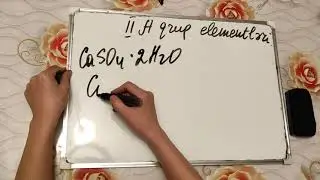 II A qrup elementləri
CaSO4·2H2O
C